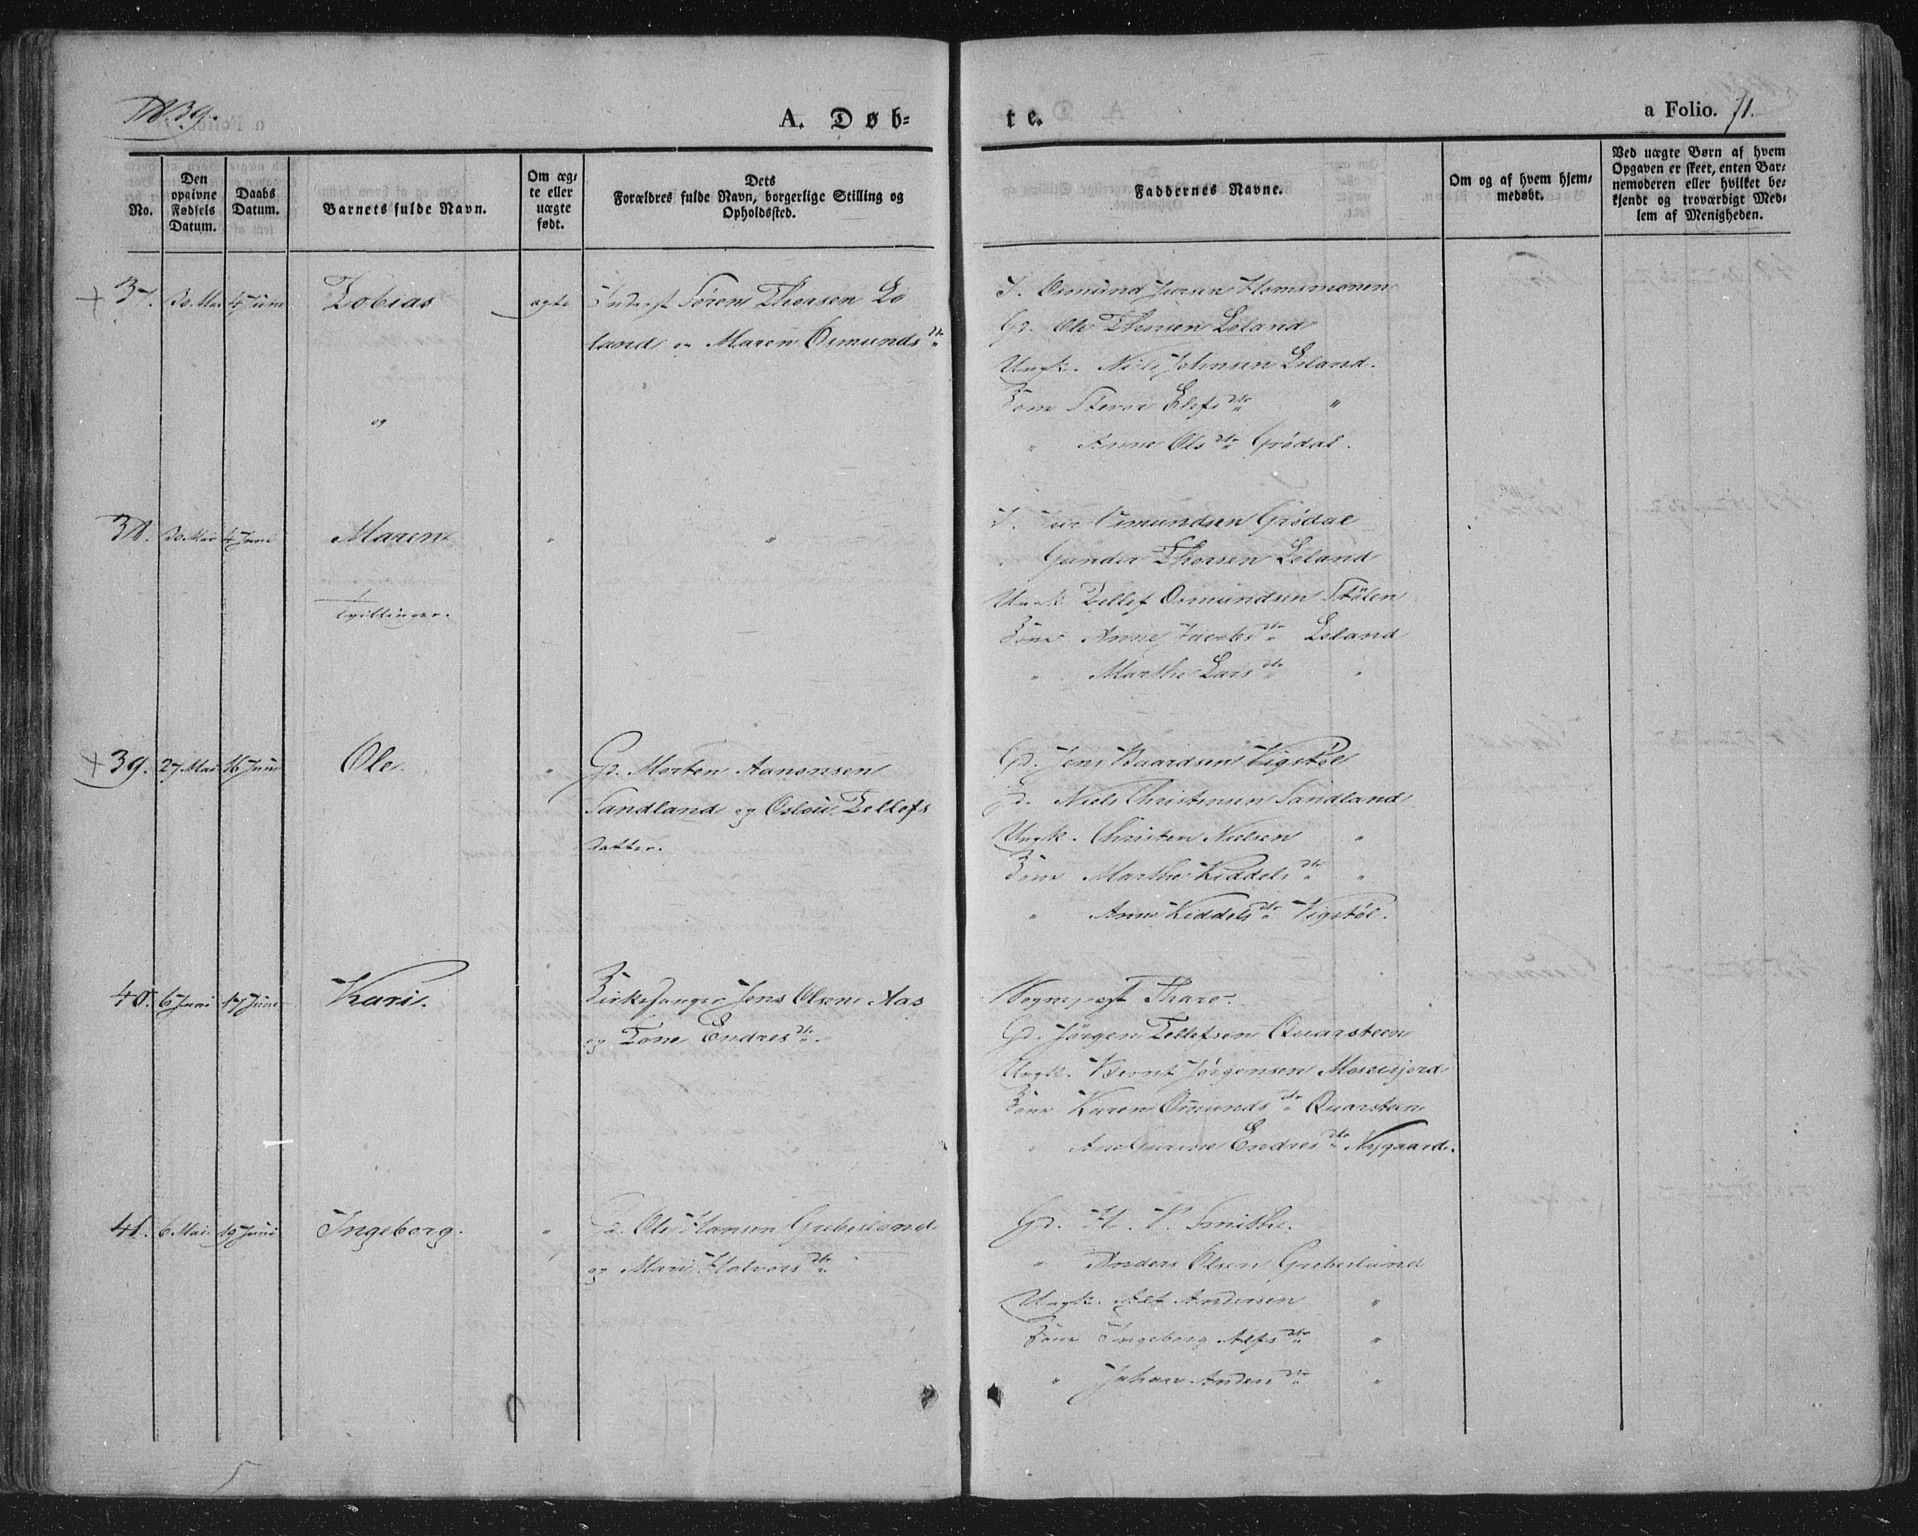 1839.
A. Døb-
te.
a Folio. 71.
No.
Den
opgivne
Fødsels
Datum.
Daabs
Datum.
Barnets fulde Navn.
Om æg-
te eller
uægte
født.
Dets
Forældres fulde Navn, borgerlige Stilling og
Opholdssted.
Faddernes Navne.
Om og af hvem hjem-
medøbt.
Ved uægte Børn af hvem
Opgaven er skeet, enten Bar-
nemoderen eller hvilket be-
kjendt og troværdigt Med-
lem af Menigheden.
37. 30 Mai 4 Juni Tobias ægte Søren Thorsen Le
land og Maren Osmundsdtr
og
Osmund Jversen Homsmoen
Gd. Ole Thorsen Leland
Ungk. Niels Johnsen Leland.
Kone Elefsdtr "
" Anne Olsdtr Grødal.
38. 30 Mai 4 Juni Maren " "
tvillinger.
Osmundsen Grødal
Gunder Thorsen Leland
Ungk Tellef Osmundsen Stølen
Kone Anne Jacobsdtr Leland
" Marthe Larsdtr "
39. 27 Mai 16 Juni Ole. " Gd. Morten Aanonsen
Sandland og Oslau Tellefs
datter.
Gd. Jens Baardsen Vigstøl
Gd. Niels Christensen Sandland
Ungk. Christen Nielsen "
Kone Marthe Kiddelsdtr "
" Anne Kiddelsdtr Vigstøl.
40. 6 Juni 17 Juni Kari. " Kirkesanger Jens Olsen Aas
og Tone Endresdtr.
Sognepræst
Gd. Jørgen Tellefsen Quarsteen
Ungk. Bernt Jørgensen Mosesjord
Kone Karen Osmundsdtr Quarsteen
" Endresdtr Nygaard.
41. 6 Mai 19 Juni Ingeborg. " Gd. Ole Hansen Greberland
og Mari Halvorsdtr
Gd. H. V. Smith.
" Anders Olsen Greberland
Ungk. Alf Andersen "
Kone Ingeborg Alfsdtr "
" Johan Andersdtr "